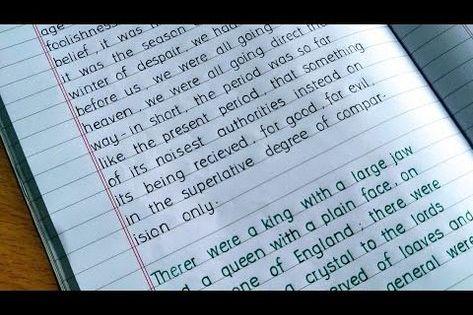 age
foolishness
belief, it was
it was the season
winter of despair, we had
before us, we were all going
heaven, we were all going direct the
way - in short, the period was so far
like the present period, that something
of its noisest authorities instead on
its being recieved, for good, for evil,
in the superlative degree of compar-
ision only.
Therer were a king with a large jaw
a queen with a plain face, on
one of England; there were
a crystal to the lords
rved of loaves and
general were